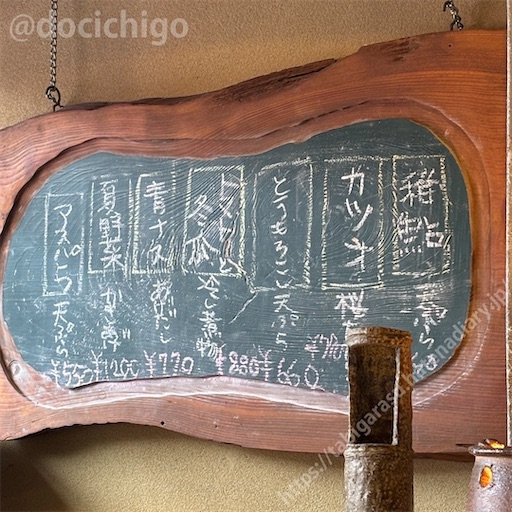 @docichigo
稚鮎 天ぷら
カツオ
とうもろこし 天ぷら ¥660
トマト 冬瓜 冷し煮物 ¥880
青ナス あげだし ¥770
夏野菜 かき揚げ ¥1200
アスパラ 天ぷら ¥550
https://tabigarasu.hatenadiary.jp/